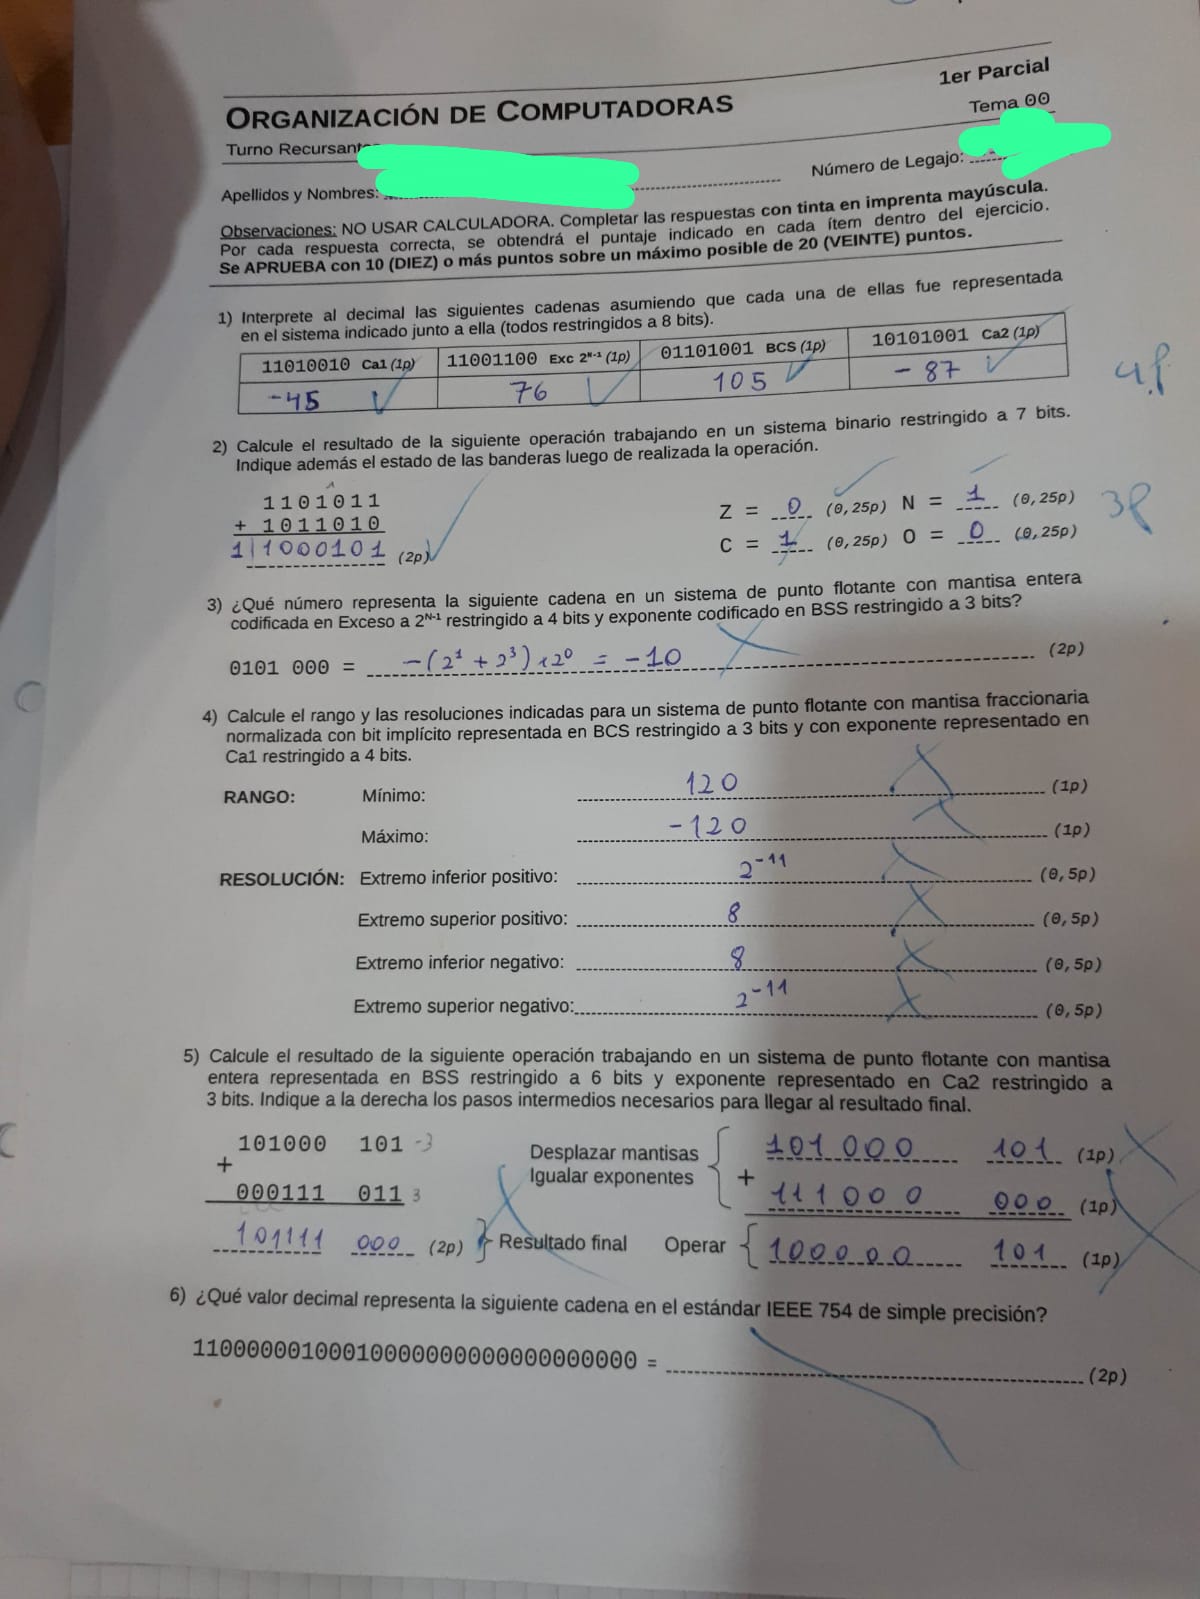 1er Parcial
ORGANIZACIÓN DE COMPUTADORAS
Tema 00
Turno Recursant
Número de Legajo:
Apellidos y Nombres:
Observaciones: NO USAR CALCULADORA. Completar las respuestas con tinta en imprenta mayúscula.
Por cada respuesta correcta, se obtendrá el puntaje indicado en cada ítem dentro del ejercicio.
Se APRUEBA con 10 (DIEZ) o más puntos sobre un máximo posible de 20 (VEINTE) puntos.
1) Interprete al decimal las siguientes cadenas asumiendo que cada una de ellas fue representada
en el sistema indicado junto a ella (todos restringidos a 8 bits).
11010010 Ca1 (1p) 11001100 Exc 2ᴺ⁻¹ (1p) 01101001 BCS (1p) 10101001 Ca2 (1p)
-45 76 105 -87
4p
2) Calcule el resultado de la siguiente operación trabajando en un sistema binario restringido a 7 bits.
Indique además el estado de las banderas luego de realizada la operación.
1101011
+ 1011010
1|1000101 (2p)
Z = 0 (0,25p) N = 1 (0,25p)
C = 1 (0,25p) O = 0 (0,25p)
3p
3) ¿Qué número representa la siguiente cadena en un sistema de punto flotante con mantisa entera
codificada en Exceso a 2ᴺ⁻¹ restringido a 4 bits y exponente codificado en BSS restringido a 3 bits?
0101 000 = -(2¹ + 2³) x 2⁰ = -10 (2p)
4) Calcule el rango y las resoluciones indicadas para un sistema de punto flotante con mantisa fraccionaria
normalizada con bit implícito representada en BCS restringido a 3 bits y con exponente representado en
Ca1 restringido a 4 bits.
RANGO: Mínimo: 120 (1p)
Máximo: -120 (1p)
RESOLUCIÓN: Extremo inferior positivo: 2⁻¹¹ (0,5p)
Extremo superior positivo: 8 (0,5p)
Extremo inferior negativo: 8 (0,5p)
Extremo superior negativo: 2⁻¹¹ (0,5p)
5) Calcule el resultado de la siguiente operación trabajando en un sistema de punto flotante con mantisa
entera representada en BSS restringido a 6 bits y exponente representado en Ca2 restringido a
3 bits. Indique a la derecha los pasos intermedios necesarios para llegar al resultado final.
101000 101 -3
+
000111 011 3
101111 000 (2p) Resultado final
Desplazar mantisas
Igualar exponentes
101000 101 (1p)
+ 111000 000 (1p)
Operar 100000 101 (1p)
6) ¿Qué valor decimal representa la siguiente cadena en el estándar IEEE 754 de simple precisión?
= (2p)